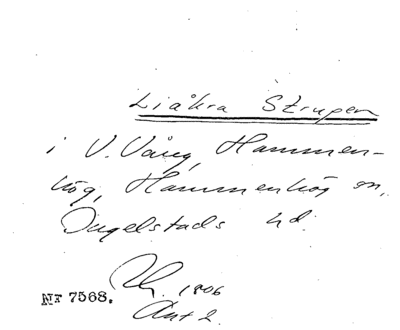 Liåkra Strupen
i V. Vång, Hammen-
hög, Hammenhög sn,
Ingelstads hd.
1806
Akt 2.
NF 7568.